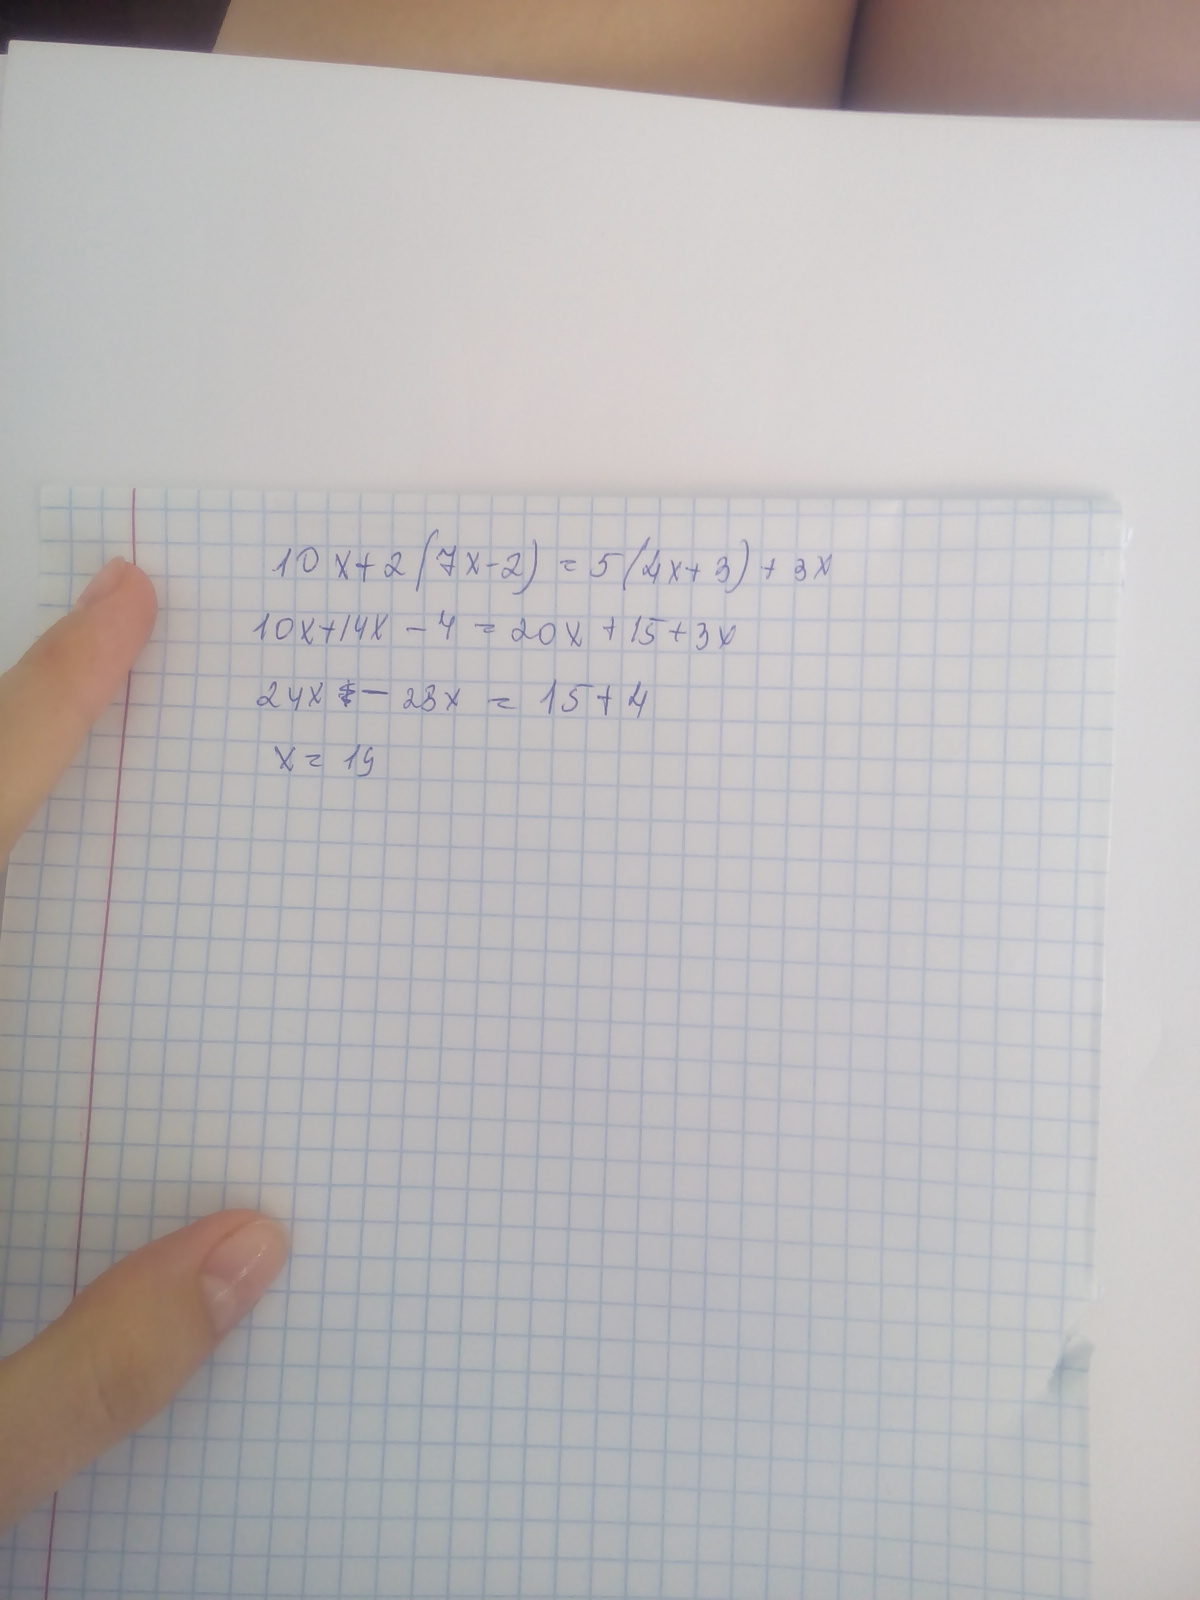 10x+2(7x-2) = 5(4x+3) + 3x
10x+14x - 4 = 20x + 15 + 3x
24x - 23x = 15 + 4
x = 19